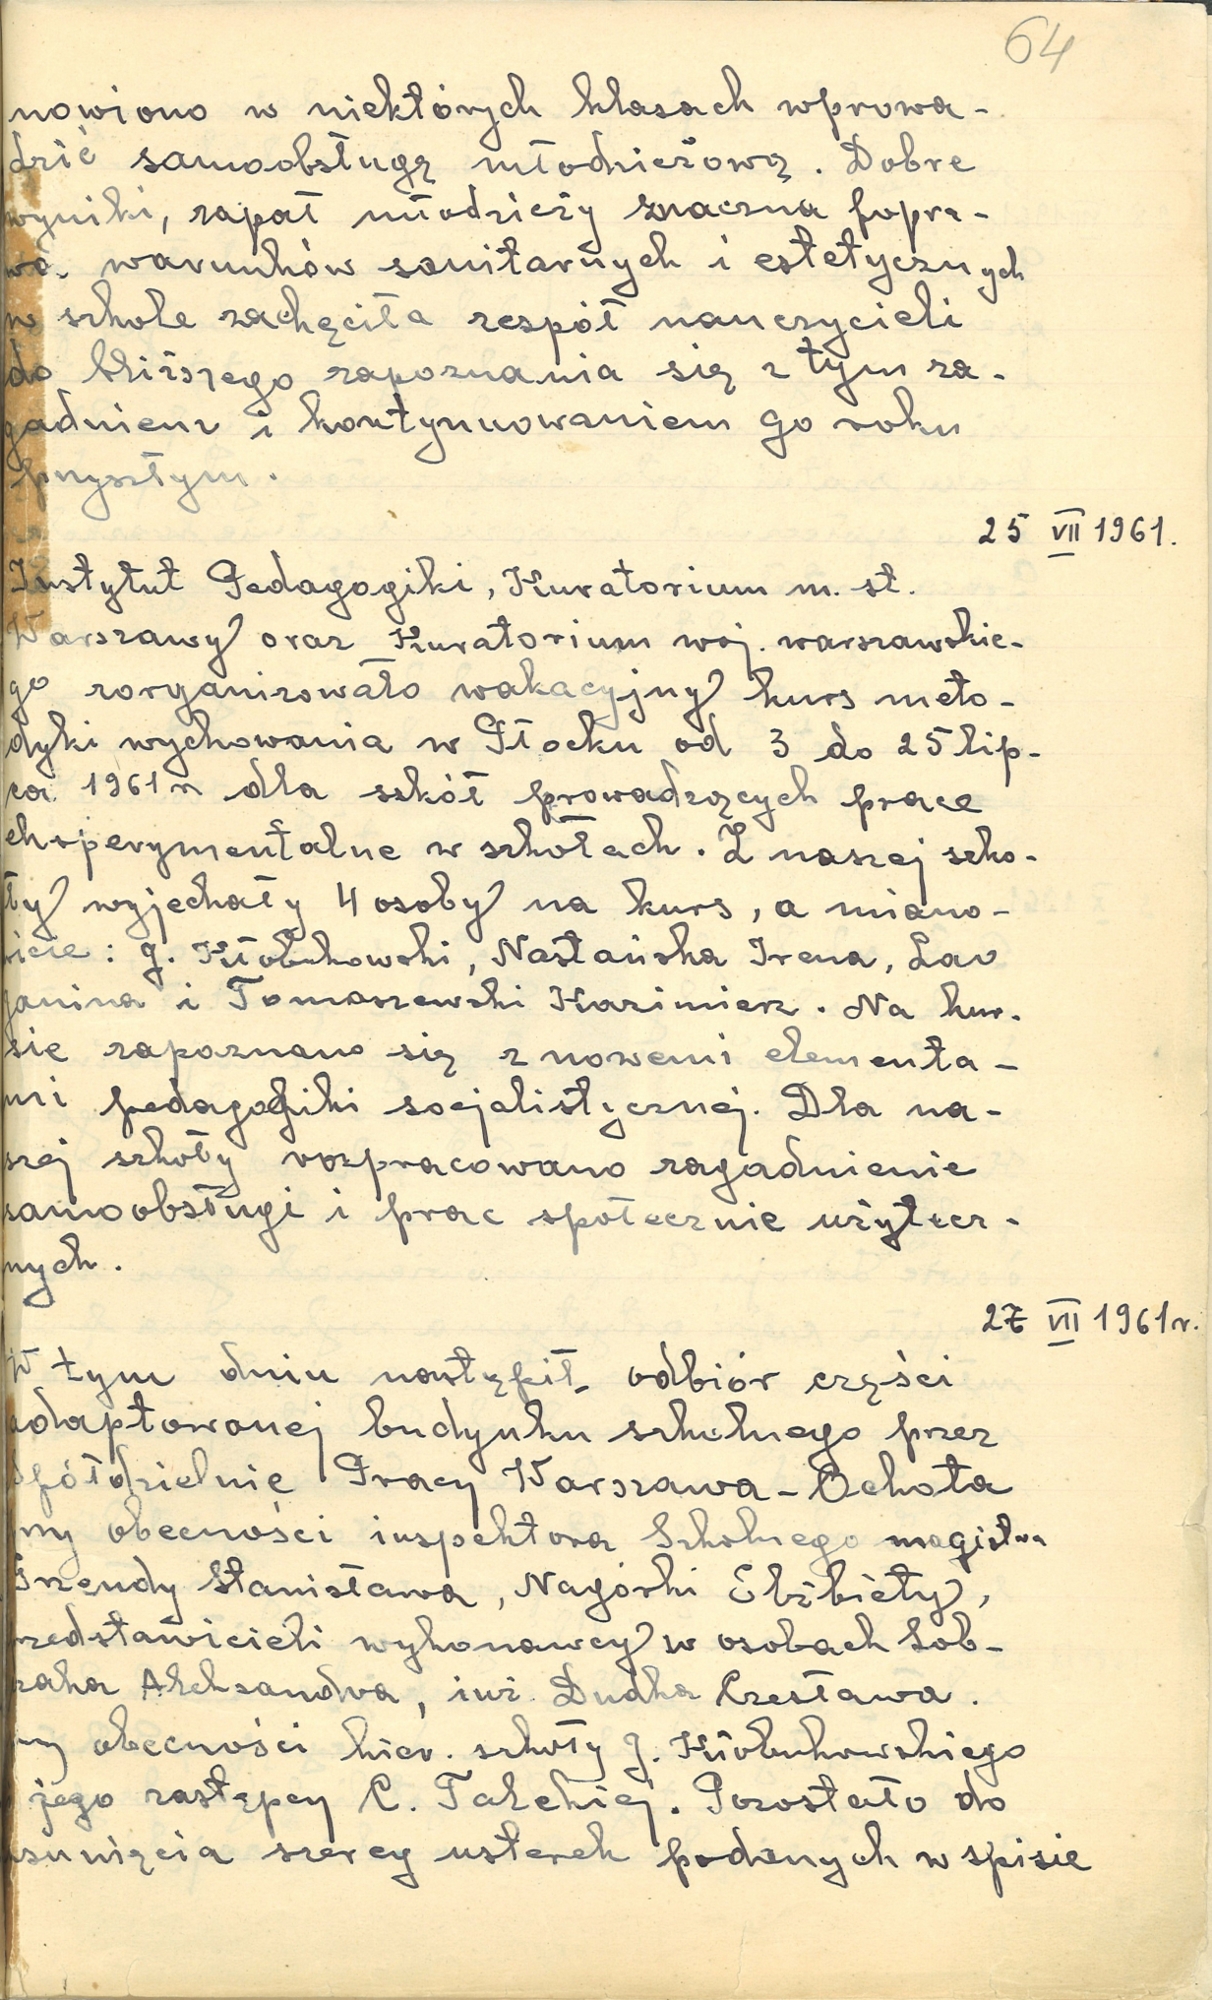 64
nowiono w niektórych klasach wprowa-
dzić samoobsługę młodzieżową. Dobre
wyniki, zapał młodzieży znaczna popra-
wa warunków sanitarnych i estetycznych
w szkole zachęciła zespół nauczycieli
do bliższego zapoznania się z tym za-
gadnieniem i kontynuowaniem go roku
przyszłym.
25 VII 1961.
Instytut Pedagogiki, Kuratorium m. st.
Warszawy oraz Kuratorium woj. warszawskie-
go zorganizowało wakacyjny kurs meto-
dyki wychowania w Płocku od 3 do 25 lip-
ca 1961 r. dla szkół prowadzących prace
eksperymentalne w szkołach. Z naszej szko-
ły wyjechały 4 osoby na kurs, a miano-
wicie: J. Kłobukowski, Nastańska Irena, Lao
Janina i Tomaszewski Kazimierz. Na kur-
sie zapoznano się z nowemi elementa-
mi pedagogiki socjalistycznej. Dla na-
szej szkoły rozpracowano zagadnienie
samoobsługi i prac społecznie użytecz-
nych.
27 VII 1961 r.
W tym dniu nastąpił odbiór części
adaptowanej budynku szkolnego przez
Spółdzielnię Pracy Warszawa - Ochota
przy obecności inspektora Szkolnego magistra
Grzendy Stanisława, Nagórki Elżbiety,
przedstawicieli wykonawcy w osobach Sob-
czaka Aleksandra, inż. Dudka Czesława.
przy obecności kier. szkoły J. Kłobukowskiego
i jego zastępcy C. Talekiej. Pozostało do
usunięcia szereg usterek podanych w spisie